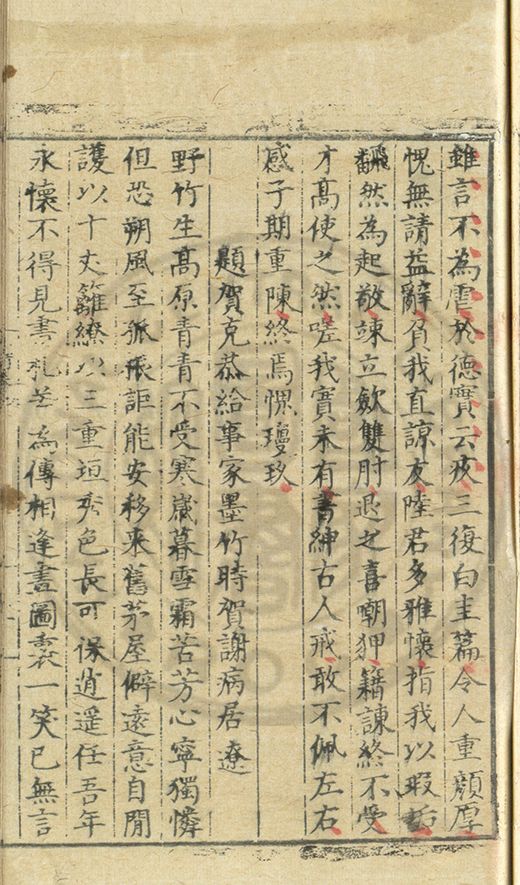 雖言不為虐於德實云疚三復白圭篇令人重顏厚
愧無請益辭負我直諒友陸君多雅懷指我以瑕垢
翻然為起敬竦立歛雙肘退之喜嘲狎籍諫終不受
才高使之然嗟我實未有書紳古人戒敢不佩左右
感子期重陳終焉愧瓊玖
題賀克恭給事家墨竹時賀謝病居遼
野竹生高原青青不受寒歲暮雪霜苦芳心寧獨憐
但恐朔風至孤根詎能安移來舊茅屋僻遠意自閒
護以十丈籬繚以三重垣秀色長可保逍遥任吾年
永懷不得見書札若為傳相逢畫圖裏一笑已無言